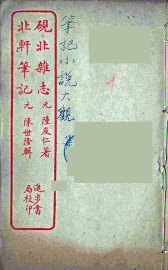 筆記小說大觀
硯北雜志 元 陸友仁著
北軒筆記 元 陳世隆輯
進步書
局校印